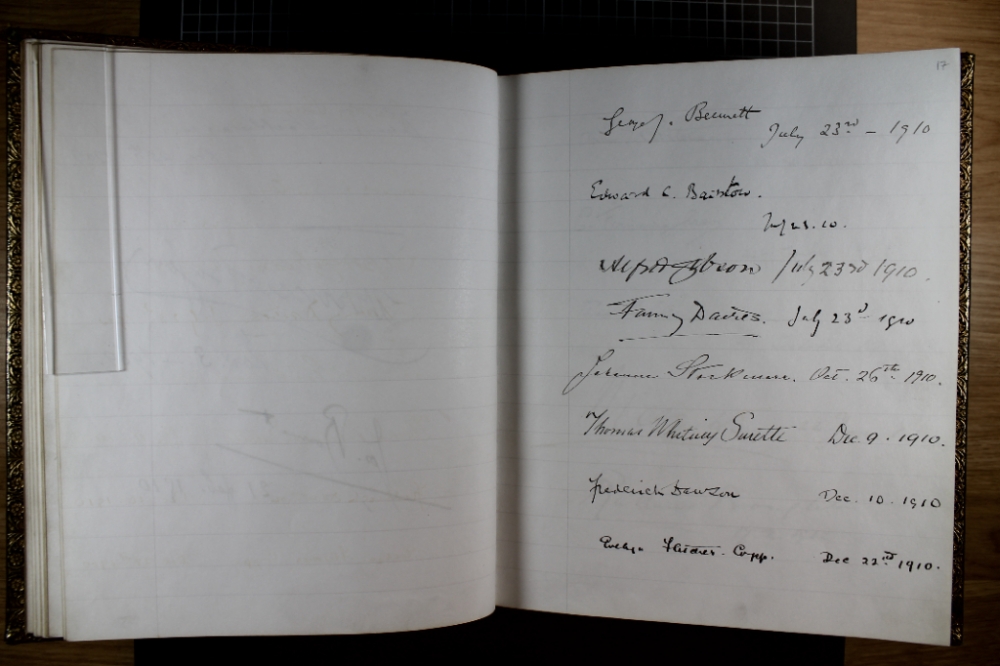 17
George J. Bennett July 23rd - 1910
Edward C. Bairstow.
July 23. 10.
Alfred Gibson July 23rd 1910.
Fanny Davies. July 23d 1910
Johanne Stockmarr. Oct. 26th 1910.
Thomas Whitney Surette Dec. 9. 1910.
Frederick Dawson Dec. 10. 1910
Evelyn Fletcher. Copp. Dec 22nd 1910.